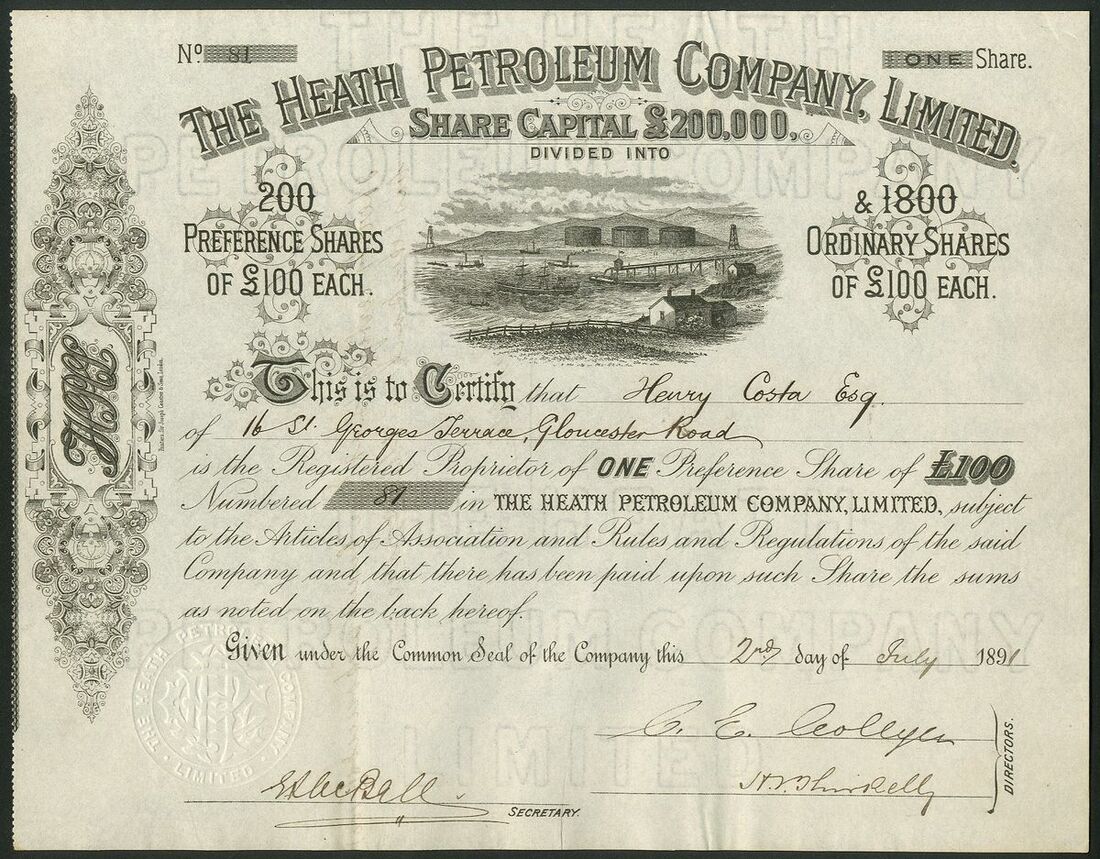 No. 81
ONE Share.
THE HEATH PETROLEUM COMPANY, LIMITED.
SHARE CAPITAL £200,000,
DIVIDED INTO
200
PREFERENCE SHARES
OF £100 EACH.
& 1800
ORDINARY SHARES
OF £100 EACH.
This is to Certify that Henry Costa Esq.
of 16 St. Georges Terrace, Gloucester Road
is the Registered Proprietor of ONE Preference Share of £100
Numbered 81 in THE HEATH PETROLEUM COMPANY, LIMITED, subject
to the Articles of Association and Rules and Regulations of the said
Company and that there has been paid upon such Share the sums
as noted on the back hereof.
Given under the Common Seal of the Company this 2nd day of July 1891
C. E. Collyer
DIRECTORS.
SECRETARY.
THE HEATH PETROLEUM COMPANY
LIMITED
THE HEATH
PETROLEUM COMPANY
PETROLEUM COMPANY
LIMITED